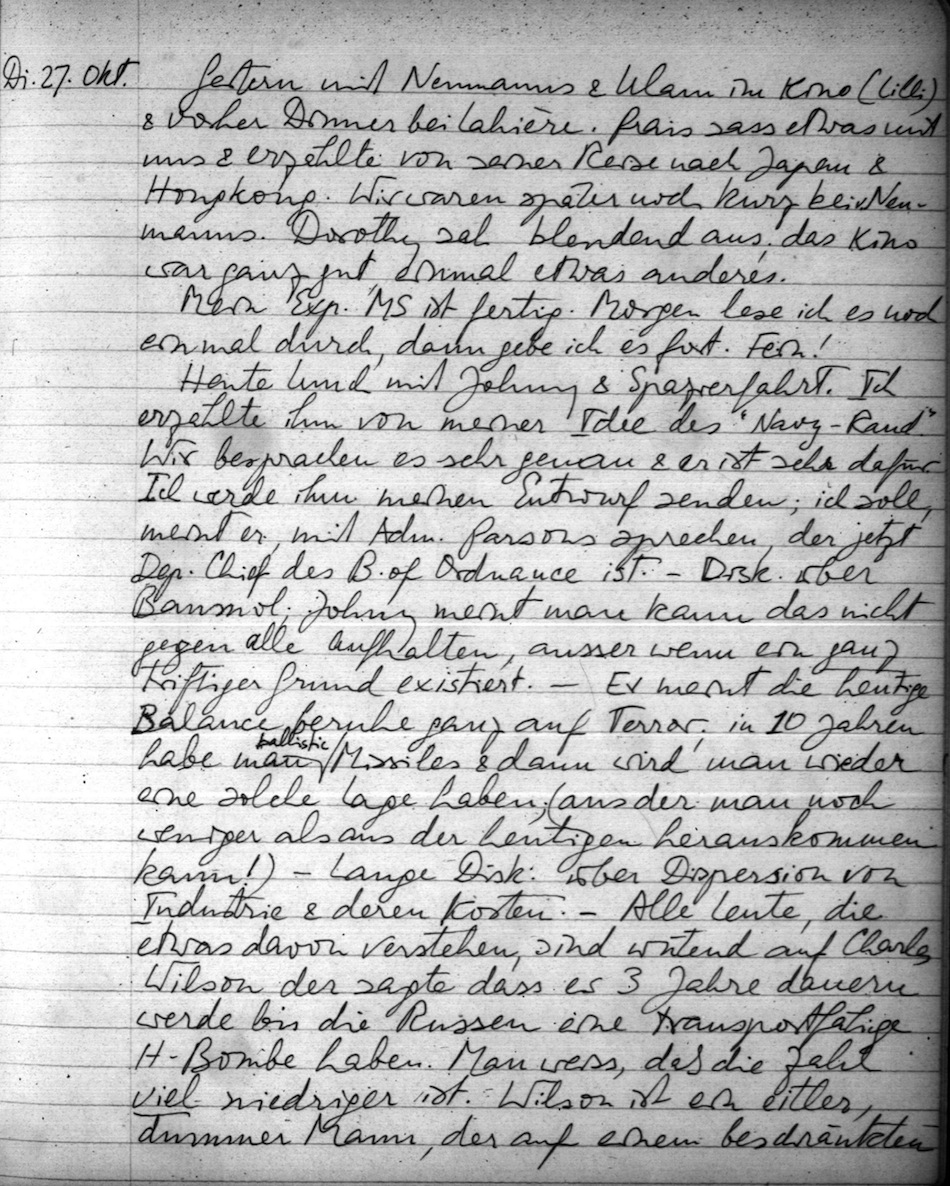 Di. 27. Okt. Gestern mit Neumanns & Ulam im Kino (Lilli)
& vorher Dinner bei Lahière. Frais sass etwas mit
uns & erzählte von seiner Reise nach Japan &
Hongkong. Wir waren später noch kurz bei v. Neu-
manns. Dorothy sah blendend aus, das Kino
war ganz gut, einmal etwas anderes.
Mein Exp. MS ist fertig. Morgen lese ich es noch
einmal durch, dann gebe ich es fort. Fein!
Heute Lunch mit Johnny & Spazierfahrt. Ich
erzählte ihm von meiner Idee des "Navy-Rand"
Wir besprachen es sehr genau & er ist sehr dafür
Ich werde ihm meinen Entwurf senden; ich soll,
meint er, mit Adm. Parsons sprechen, der jetzt
Dep. Chief des B. of Ordnance ist. - Disk. über
Baumol; Johnny meint man kann das nicht
gegen alle aufhalten, ausser wenn ein ganz
triftiger Grund existiert. - Er meint die heutige
Balance beruhe ganz auf Terror; in 10 Jahren
habe man ballistic Missiles & dann wird man wieder
eine solche Lage haben, (aus der man noch
weniger als aus der heutigen herauskommen
kann!) - Lange Disk. über Dispersion von
Industrie & deren Kosten. - Alle Leute, die
etwas davon verstehen, sind wütend auf Charles
Wilson der sagte dass es 3 Jahre dauern
werde bis die Russen eine transportfähige
H-Bombe haben. Man weiss, daß die Zahl
viel niedriger ist. Wilson ist ein eitler,
dummer Mann, der auf einem beschränkten